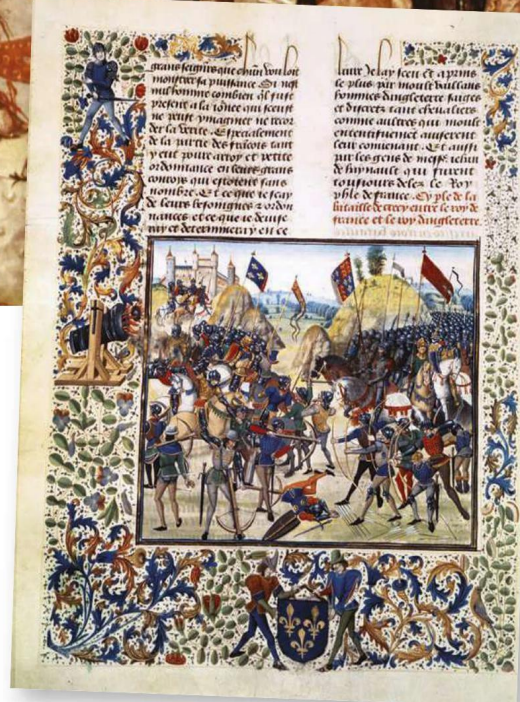 grans seigns que chun vouloit
monstrer sa puissance Si nest
nul homme combien quil feust
present a la iornee qui sceust
ne peust ymaginer ne recor
der la verite Especialement
de la partie des francois tant
y eut poure arroy et petite
ordonnance en leurs grans
conrois qui estoient sans
nombre Et ce que ie scay
de leurs besongnes et ordon
nances et ce que ie deuise
ray et determineray en ce
liure Je lay sceu et aprins
le plus par moult vaillans
hommes dangleterre saiges
et discretz tant cheualiers
comme aultres qui moult
ententifuement auiserent
leur conuenant Et aussi
par les gens de messe iehan
de haynault qui furent
tousiours delez le Roy
phle de france Cy ple de la
bataille de crecy entre le roy de
france et le roy dangleterre